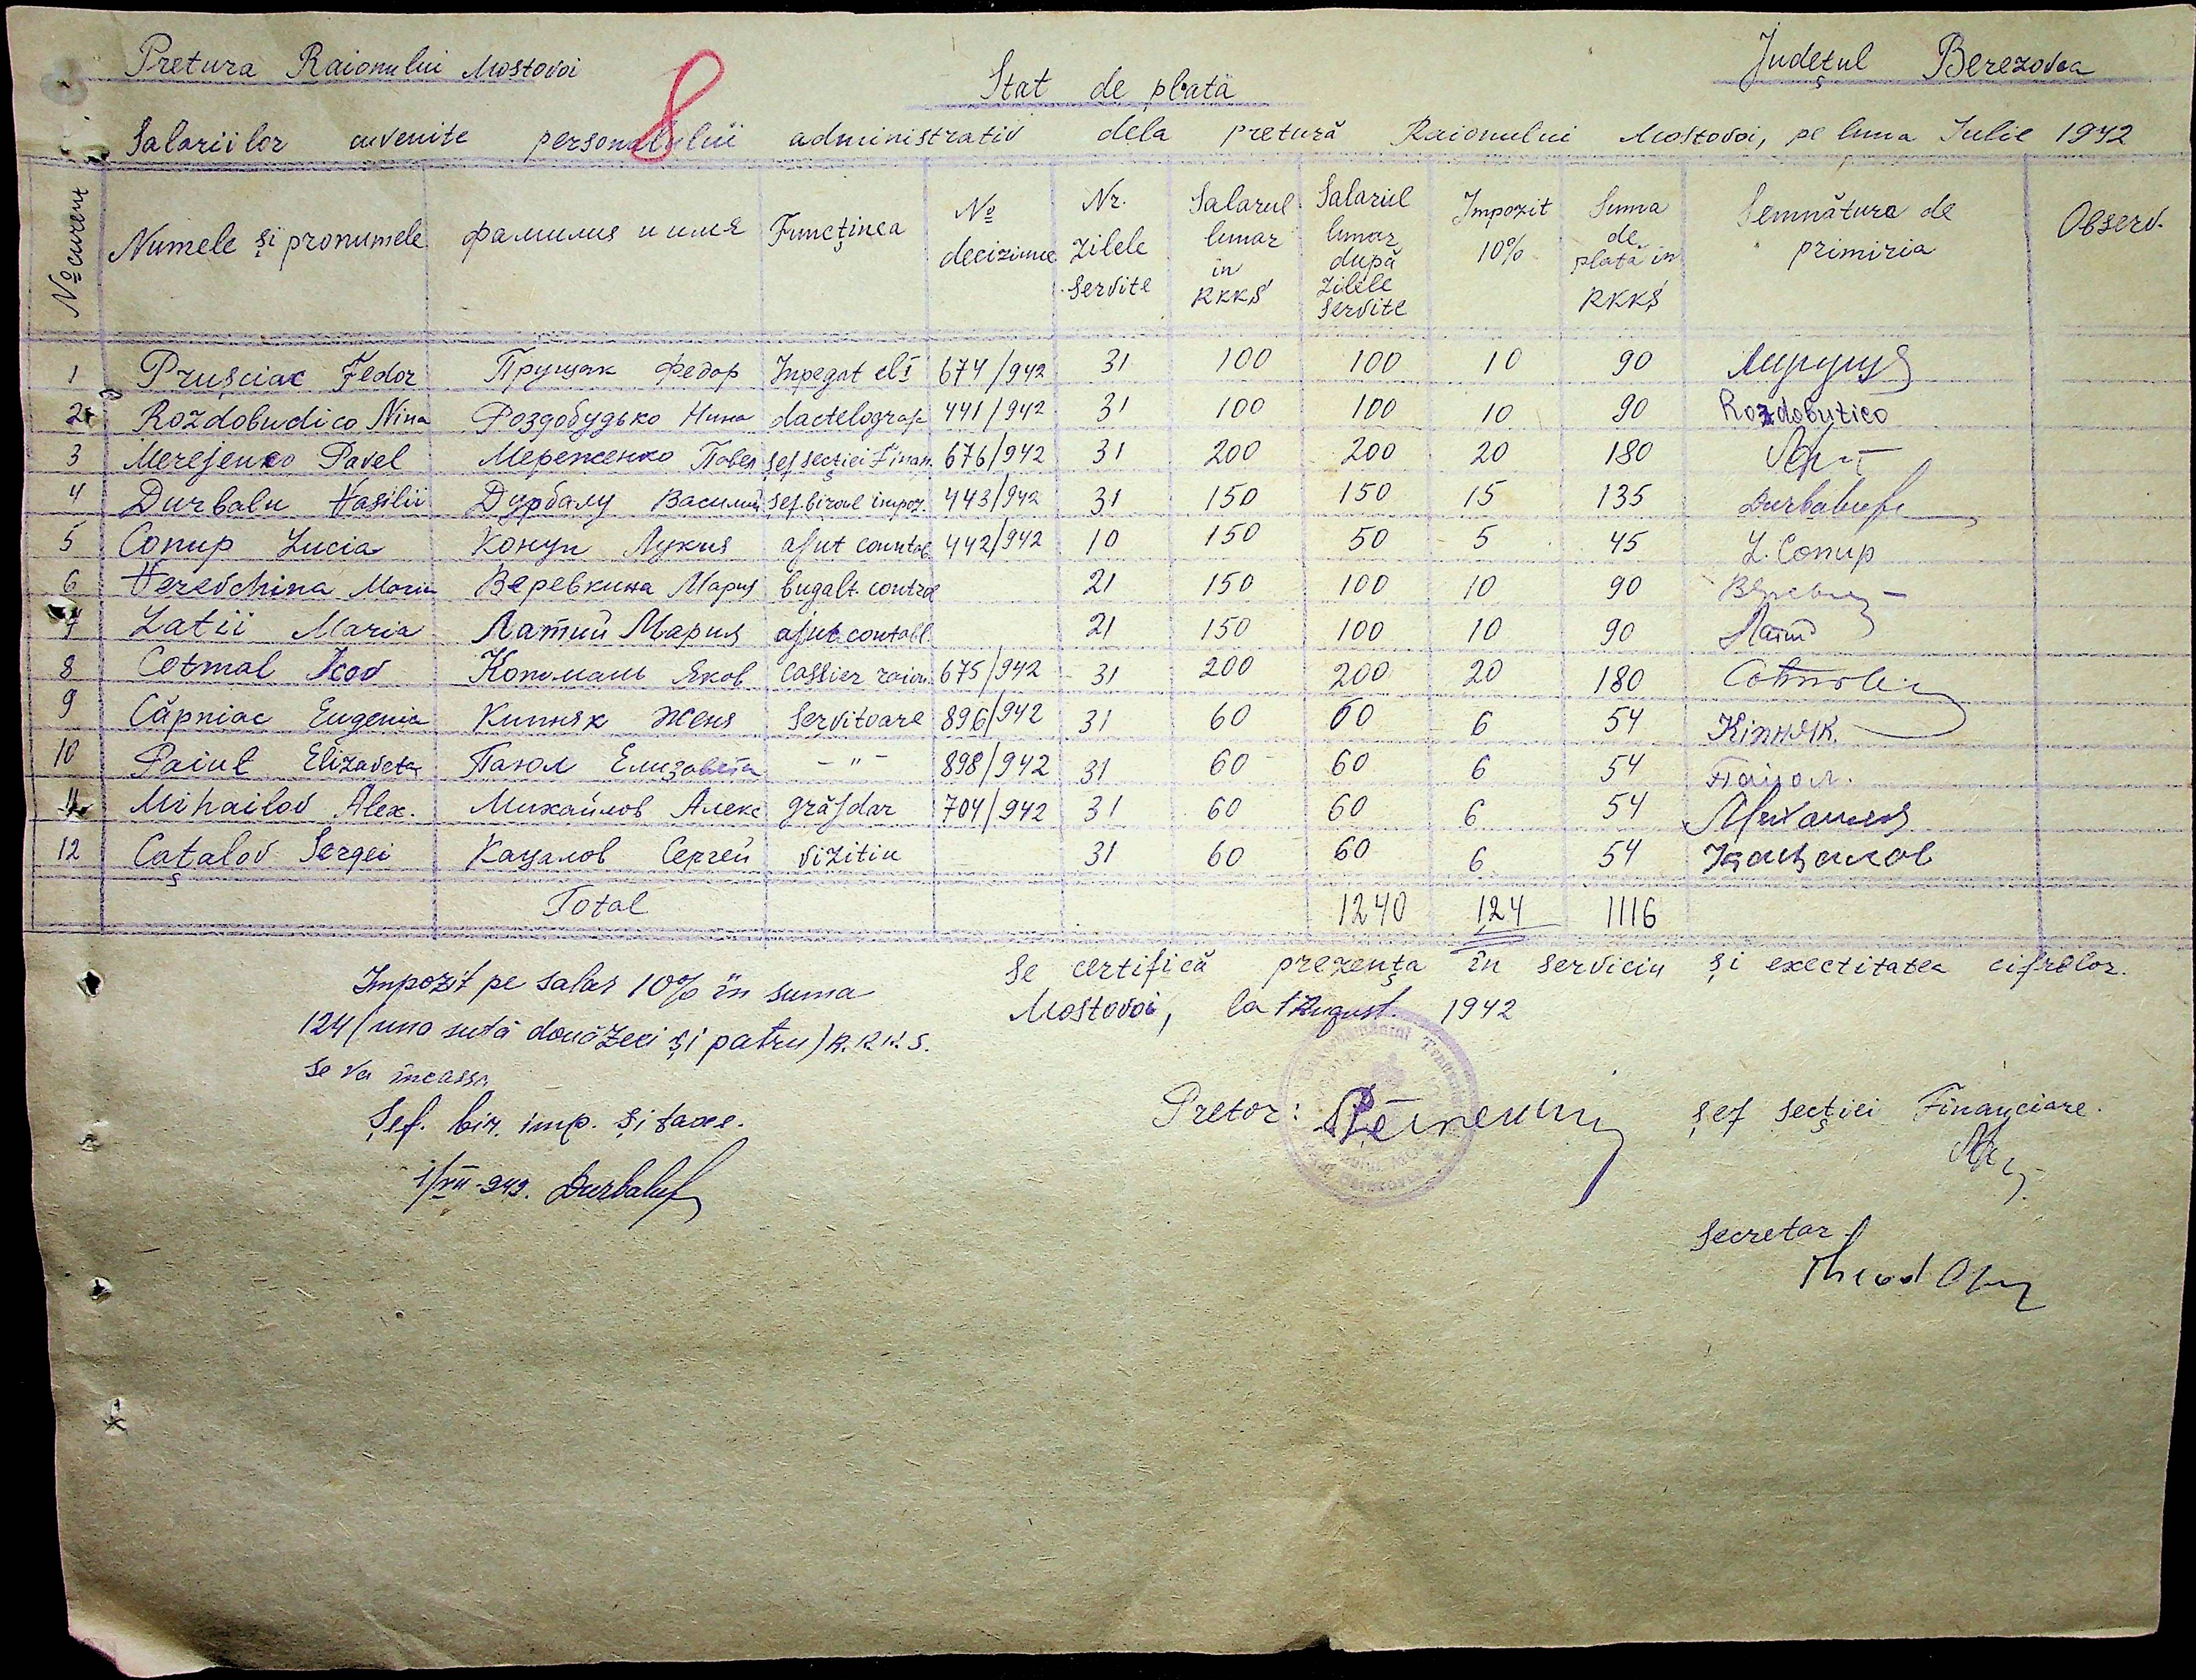 Pretura Raionului Mostovoi
Judeţul Berezovca
8
Stat de plată
Salariilor cuvenite personalului administrativ dela pretură Raionului Mostovoi, pe luna Iulie 1942
No curent Numele şi pronumele фамилия и имя Funcţinea No deciziunie Nr. zilele servite Salarul lunar in RKKS Salariul lunar după zilele servite Impozit 10% Suma de plată in RKKS Semnătura de primiria Observ.
1 Pruşciac Fedor Прущак Федор Inpegat cl I 674/942 31 100 100 10 90
2 Rozdobudico Nina Роздобудько Нина dactelografă 441/942 31 100 100 10 90 Rozdobutico
3 Merejenko Pavel Мереженко Павел şef secţiei Finan. 676/942 31 200 200 20 180
4 Durbalu Vasilii Дурбалу Василий şef.biroul impoz. 443/942 31 150 150 15 135
5 Conup Lucia Конуп Лукия ajut contab. 442/942 10 150 50 5 45 L. Conup
6 Verevchina Maria Веревкина Мария bugalt. contra 21 150 100 10 90
7 Latii Maria Латий Мария ajut contabl. 21 150 100 10 90 Латий
8 Cotmal Icov Котмань Яков Cassier raion. 675/942 31 200 200 20 180
9 Căpniac Eugenia Кипняк Женя Servitoare 896/942 31 60 60 6 54 Кіпняк.
10 Paiul Elizaveta Паюл Елизавета - " - 898/942 31 60 60 6 54 Паюл.
11 Mihailov Alex. Михайлов Алекс grăjdar 704/942 31 60 60 6 54 Михайлов
12 Caţalov Sergei Кацалов Сергей vizitiu 31 60 60 6 54 Кацалов
Total 1240 124 1116
Se certifică prezenţa în serviciu şi exectitatea cifrelor.
Mostovoi, la 1 August 1942
Impozit pe salar 10% în suma
124 (uno sută douăzeci şi patru) R.K.K.S.
se va încassa
Şef. bir. imp. şi taxe.
1/VII-942. Durbalu
Pretor:
şef secţiei Financiare.
Secretar
Theod